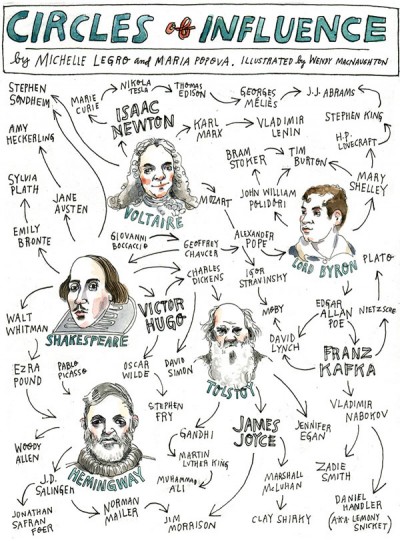 CIRCLES of INFLUENCE
by MICHELLE LEGRO and MARIA POPOVA. ILLUSTRATED by WENDY MACNAUGHTON
STEPHEN
SONDHEIM
MARIE
CURIE
NIKOLA
TESLA
THOMAS
EDISON
GEORGES
MÉLIÈS
J.J. ABRAMS
ISAAC
NEWTON
KARL
MARX
VLADIMIR
LENIN
STEPHEN KING
AMY
HECKERLING
H.P.
LOVECRAFT
BRAM
STOKER
TIM
BURTON
SYLVIA
PLATH
JANE
AUSTEN
VOLTAIRE
MOZART
JOHN WILLIAM
POLIDORI
MARY
SHELLEY
EMILY
BRONTE
GIOVANNI
BOCCACCIO
GEOFFREY
CHAUCER
ALEXANDER
POPE
LORD BYRON
PLATO
CHARLES
DICKENS
IGOR
STRAVINSKY
VICTOR
HUGO
WALT
WHITMAN
SHAKESPEARE
MOBY
EDGAR
ALLAN
POE
NIETZSCHE
DAVID
LYNCH
FRANZ
KAFKA
EZRA
POUND
PABLO
PICASSO
OSCAR
WILDE
DAVID
SIMON
TOLSTOY
STEPHEN
FRY
VLADIMIR
NABOKOV
GANDHI
JAMES
JOYCE
JENNIFER
EGAN
WOODY
ALLEN
HEMINGWAY
MARTIN
LUTHER KING
MARSHALL
McLUHAN
ZADIE
SMITH
J.D.
SALINGER
MUHAMMAD
ALI
JONATHAN
SAFRAN
FOER
NORMAN
MAILER
JIM
MORRISON
CLAY SHIRKY
DANIEL
HANDLER
(A.K.A. LEMONY
SNICKET)